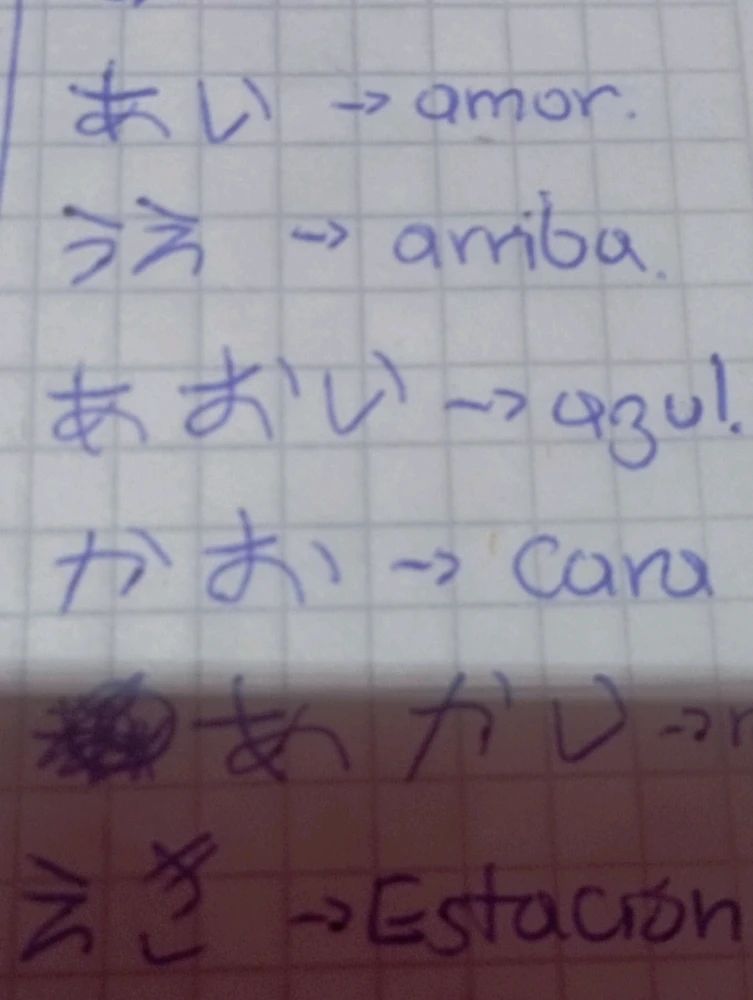 あい → amor.
うえ → arriba.
あおい → azul.
かお → Cara
あかい →
えき → Estación